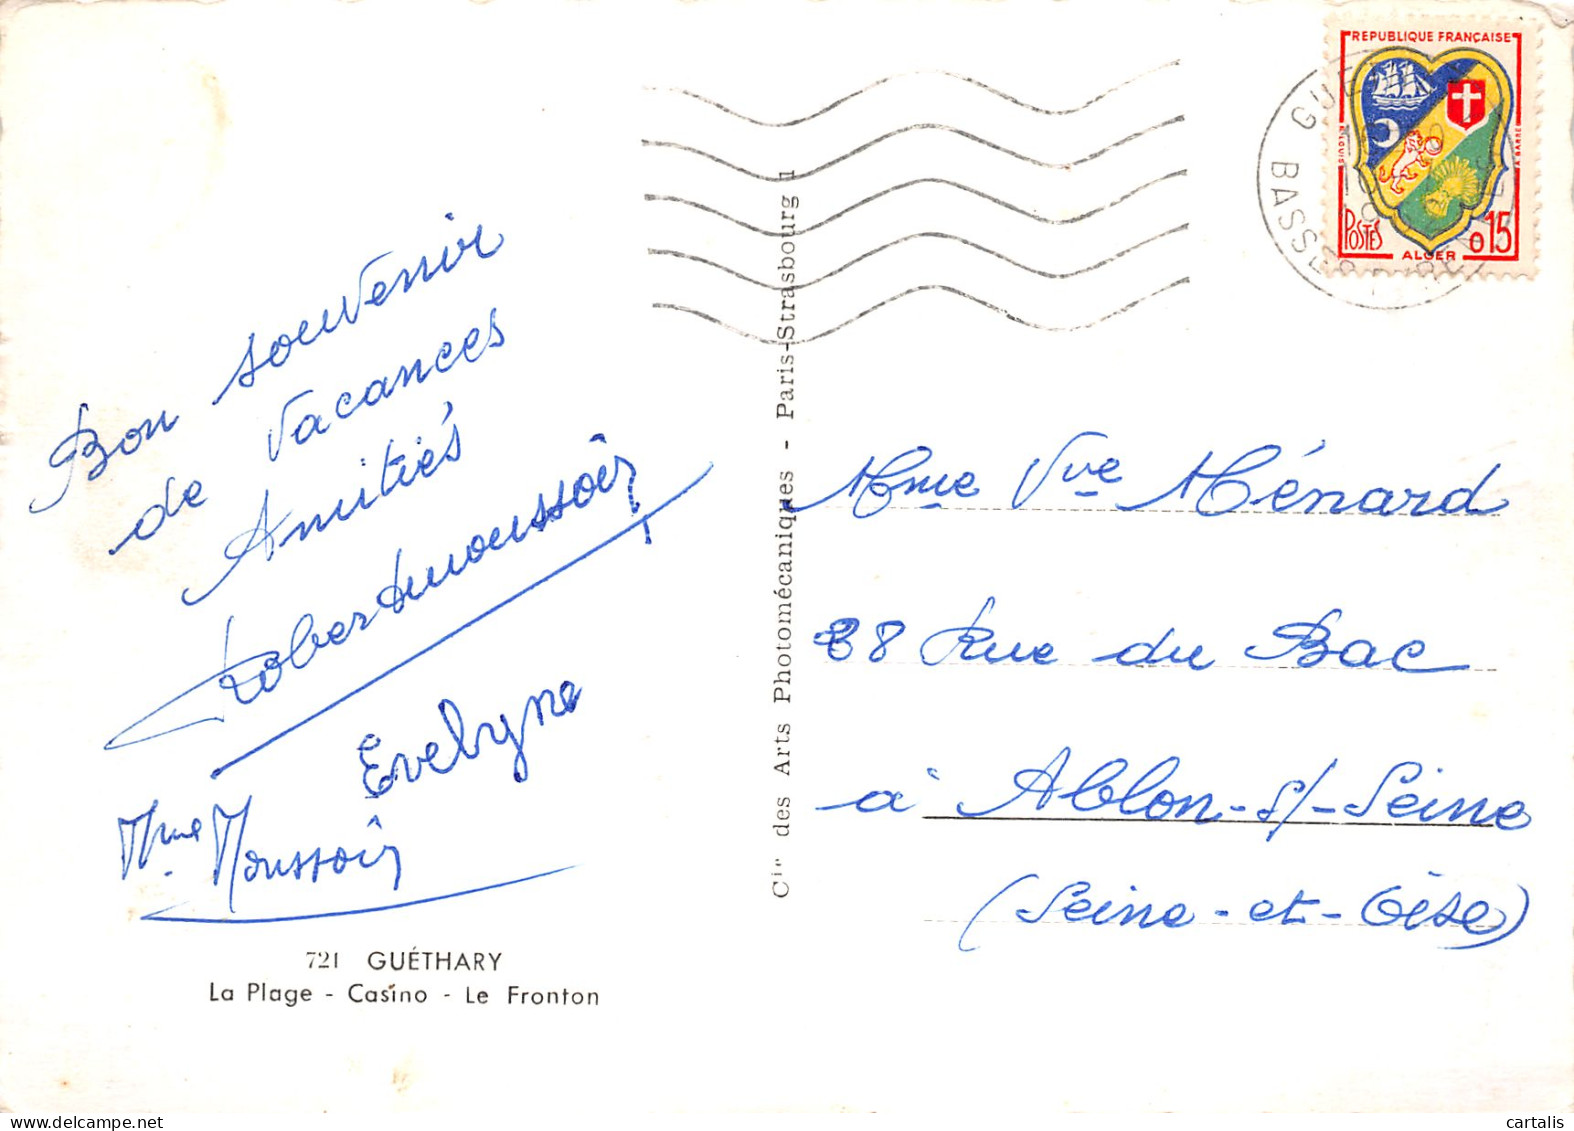 Bon souvenir
de vacances
Amitiés
Robert Moussoir
Evelyne
Mme Moussoir
721 GUÉTHARY
La Plage - Casino - Le Fronton
Cie des Arts Photomécaniques - Paris-Strasbourg
RÉPUBLIQUE FRANÇAISE
POSTES
0,15
ALGER
BASSES
Mme Vve Ménard
88 Rue du Bac
à Ablon-s/-Seine
(Seine-et-Oise)
cartalis
www.delcampe.net